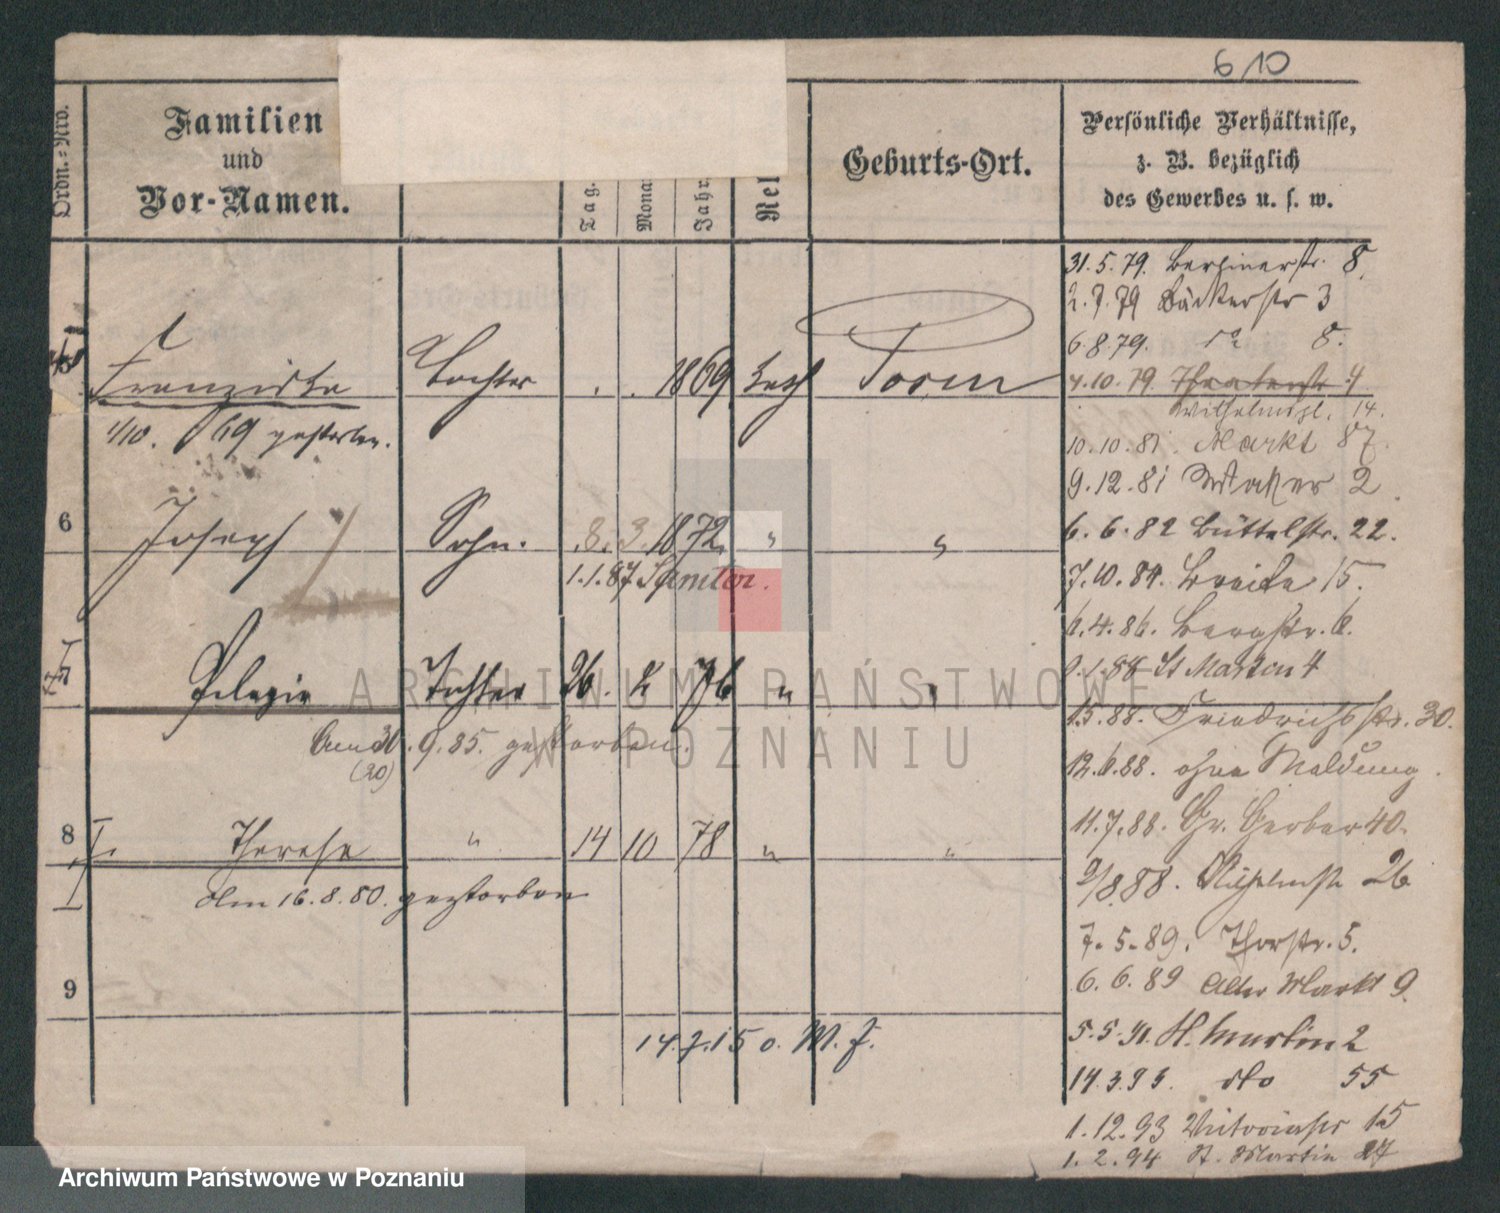 610
Ordn.-Nro.
Familien
und
Vor-Namen.
Tag.
Mona
Jahr.
Rel
Geburts-Ort.
Persönliche Verhältnisse,
z. B. bezüglich
des Gewerbes u. s. w.
31.5.79. Berlinerstr. 8
2.7.79 Bäckerstr 3
6.8.79. do 8.
4.10.79 Theaterstr. 4
Wilhelmspl. 14.
10.10.81. Markt 87
9.12.81 2
6.6.82 Büttelstr. 22.
7.10.84. Breite 15.
6.4.86. Bergstr. 6.
1.88 St Martin 4
1.5.88. Friedrichsstr. 30.
12.6.88. ohne Meldung.
11.7.88. Gr. Gerber 40.
2/8.88. Wilhelmstr 26
7.5.89. Thorstr. 5.
6.6.89 Alter Markt 9.
5.5.91. St. Martin 2
14.3.93. dto 55
1.12.93 15
1.2.94 St. Martin 27
Franziska Tochter 1869 kath Posen
1/10. 69 gestorben.
6 Joseph Sohn. 8. 3. 1872 " "
1.1.87
7 Pelagia Tochter 26. 2 76 " "
30.9.85. gestorben.
(20)
8 I. Therese " 14 10 78 " "
den 16.8.80. gestorben
9
14.7.15 o. M. f.
ARCHIWUM PAŃSTWOWE
W POZNANIU
Archiwum Państwowe w Poznaniu